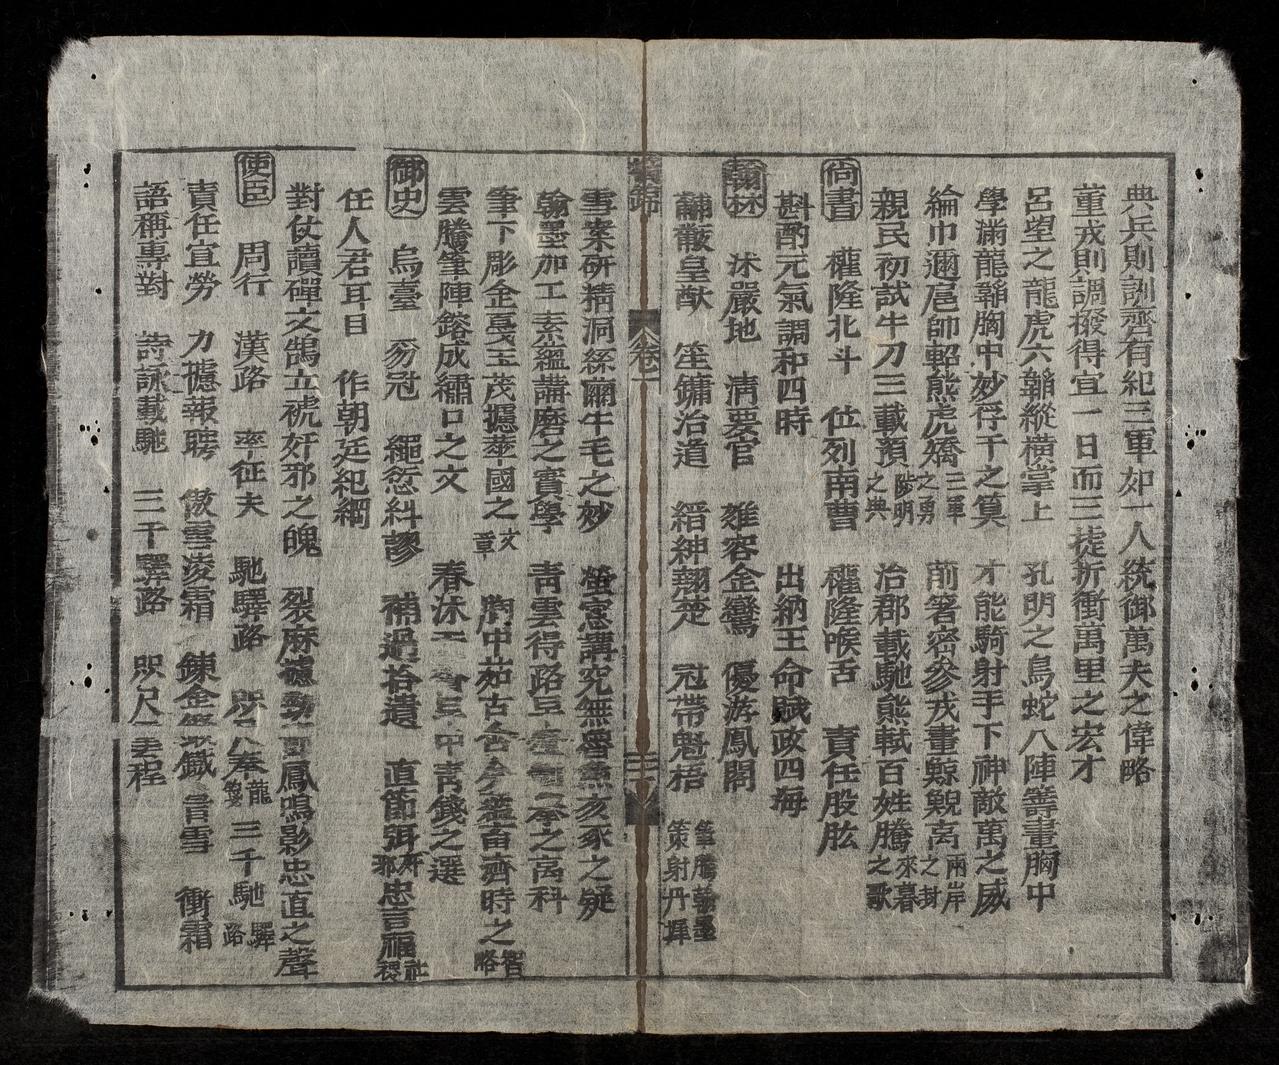 典兵則訓齊有紀三軍如一人統御萬夫之偉略
董戎則調撥得宜一日而三捷折衝萬里之宏才
呂望之龍虎六韜縱橫掌上 孔明之鳥蛇八陣籌畫胸中
學滿龍韜胸中妙孚干之算 才能騎射手下神敵萬之威
綸巾邇扈帥軺熊虎嬌三軍之勇 前箸密參戎畫鯨鯢离兩岸之封
親民初試牛刀三載預陟明之典 治郡載馳熊軾百姓騰來暮之歌
尚書 權隆北斗 位列南曹 權隆喉舌 責任股肱
斟酌元氣調和四時 出納王命賦政四海
翰林 沐嚴地 清要官 雍容金鸞 優游鳳閣
黼黻皇猷 笙鏞治道 縉紳翹楚 冠帶魁梧 筆騰翰墨策射丹墀
雪案研精洞繇爾牛毛之妙 螢窓講究無魯魚亥豕之疑
翰墨加工素緼講磨之實學 青雲得路豆之高科
筆下彫金戛玉茂攄華國之文章 胸中茹古含今蘊畜濟時之智略
雲騰筆陣鎔成繡口之文 春沐 青錢之選
御史 烏臺 豸冠 繩愆糾謬 補過拾遺 直節弭奸邪忠言福社稷
任人君耳目 作朝廷紀綱
對仗讀彈文鵠立禠奸邪之魄 裂麻攄勁 鳳鳴影忠直之聲
使臣 周行 漢路 率征夫 馳驛路 奉龍 三千馳驛路
責任宜勞 力攄報聘 傲雪凌霜 鍊金 鐵 雪 衝霜
語稱專對 詩詠載馳 三千驛路 咫尺 程
卷一